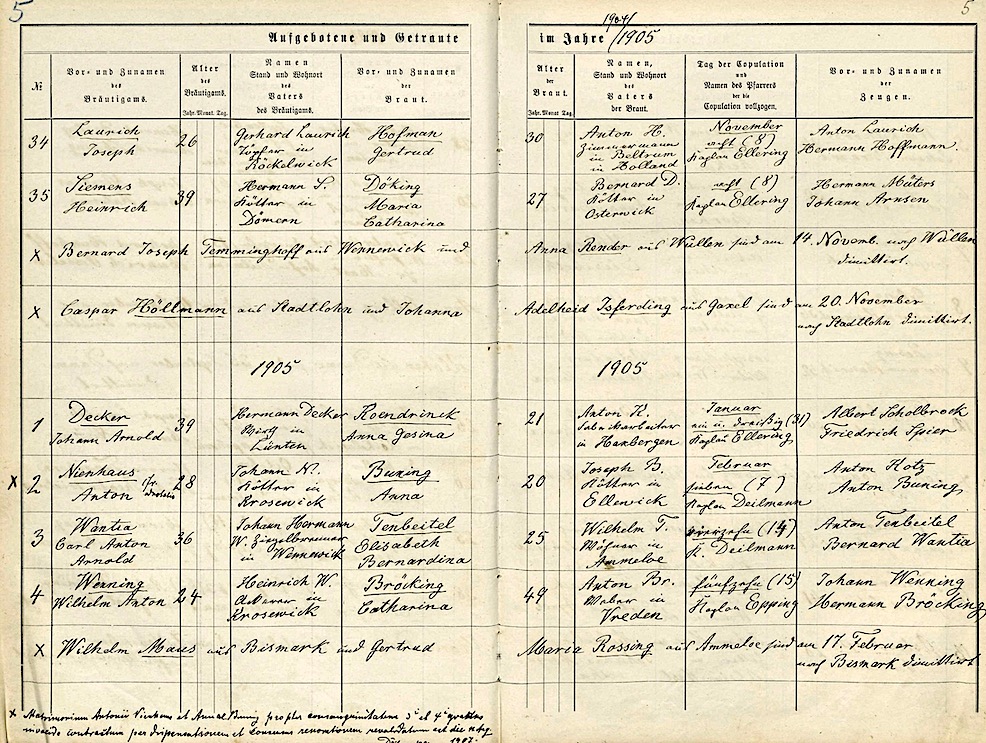 5
5
Aufgebotene und Getraute
im Jahre 1904/1905
№
Vor- und Zunamen
des
Bräutigams.
Alter
des
Bräutigams.
Jahr. Monat. Tag.
Namen
Stand und Wohnort
des
Vaters
des Bräutigams.
Vor- und Zunamen
der
Braut.
Alter
der
Braut.
Jahr. Monat. Tag.
Namen,
Stand und Wohnort
des
Vaters
der Braut.
Tag der Copulation
und
Namen des Pfarrers
der die
Copulation vollzogen.
Vor- und Zunamen
der
Zeugen.
34
Laurich
Joseph
26
Gerhard Laurich
Töpfer in
Köckelwick
Hofman
Gertrud
30
Anton H.
Zimmermann
in Beltrum
in Holland
November
acht (8)
Kaplan Ellering
Anton Laurich
Hermann Hoffmann
35
Siemens
Heinrich
39
Hermann S.
Kötter in
Dömern
Döking
Maria
Catharina
27
Bernard D.
Kötter in
Osterwick
acht (8)
Kaplan Ellering
Hermann Müters
Johann Arnsen
x Bernard Joseph Temminghoff aus Wennewick und
Anna Render aus Wüllen sind am 14. Novemb. nach Wüllen
dimittirt.
x Caspar Höllmann aus Stadtlohn und Johanna
Adelheid Isferding aus Gaxel sind am 20. November
nach Stadtlohn dimittirt.
1905
1905
1
Decker
Johann Arnold
39
Hermann Decker
Wirth in
Lünten
Roendrinck
Anna Gesina
21
Anton R.
Fabrikarbeiter
in Haxbergen
Januar
ein u. dreißig (31)
Kaplan Ellering
Albert Scholbrock
Friedrich Spier
x 2
Nienhaus
Anton
28
Johann N.
Kötter in
Krosewick
Buning
Anna
20
Joseph B.
Kötter in
Ellewick
Februar
sieben (7)
Kaplan Deilmann
Anton Hotz
Anton Buning
3
Wantia
Carl Anton
Arnold
36
Johann Hermann
W. Ziegelbrenner
in Wennewick
Tenbeitel
Elisabeth
Bernardina
25
Wilhelm T.
in
Ammeloe
vierzehn (14)
K. Deilmann
Anton Tenbeitel
Bernard Wantia
4
Wenning
Wilhelm Anton
24
Heinrich W.
Ackerer in
Krosewick
Bröcking
Catharina
49
Anton Br.
Weber in
Vreden
fünfzehn (15)
Kaplan Epping
Johann Wenning
Hermann Bröcking
x Wilhelm Maus aus Bismark und Gertrud
Maria Rossing aus Ammeloe sind am 17. Februar
nach Bismark dimittirt
x Matrimonium Antonii Nienhaus et Annae Buning propter consanguinitatem 3i et 4i gradus
invalide contractum per dispensationem et consensus renovationem revalidatum est die
1907.